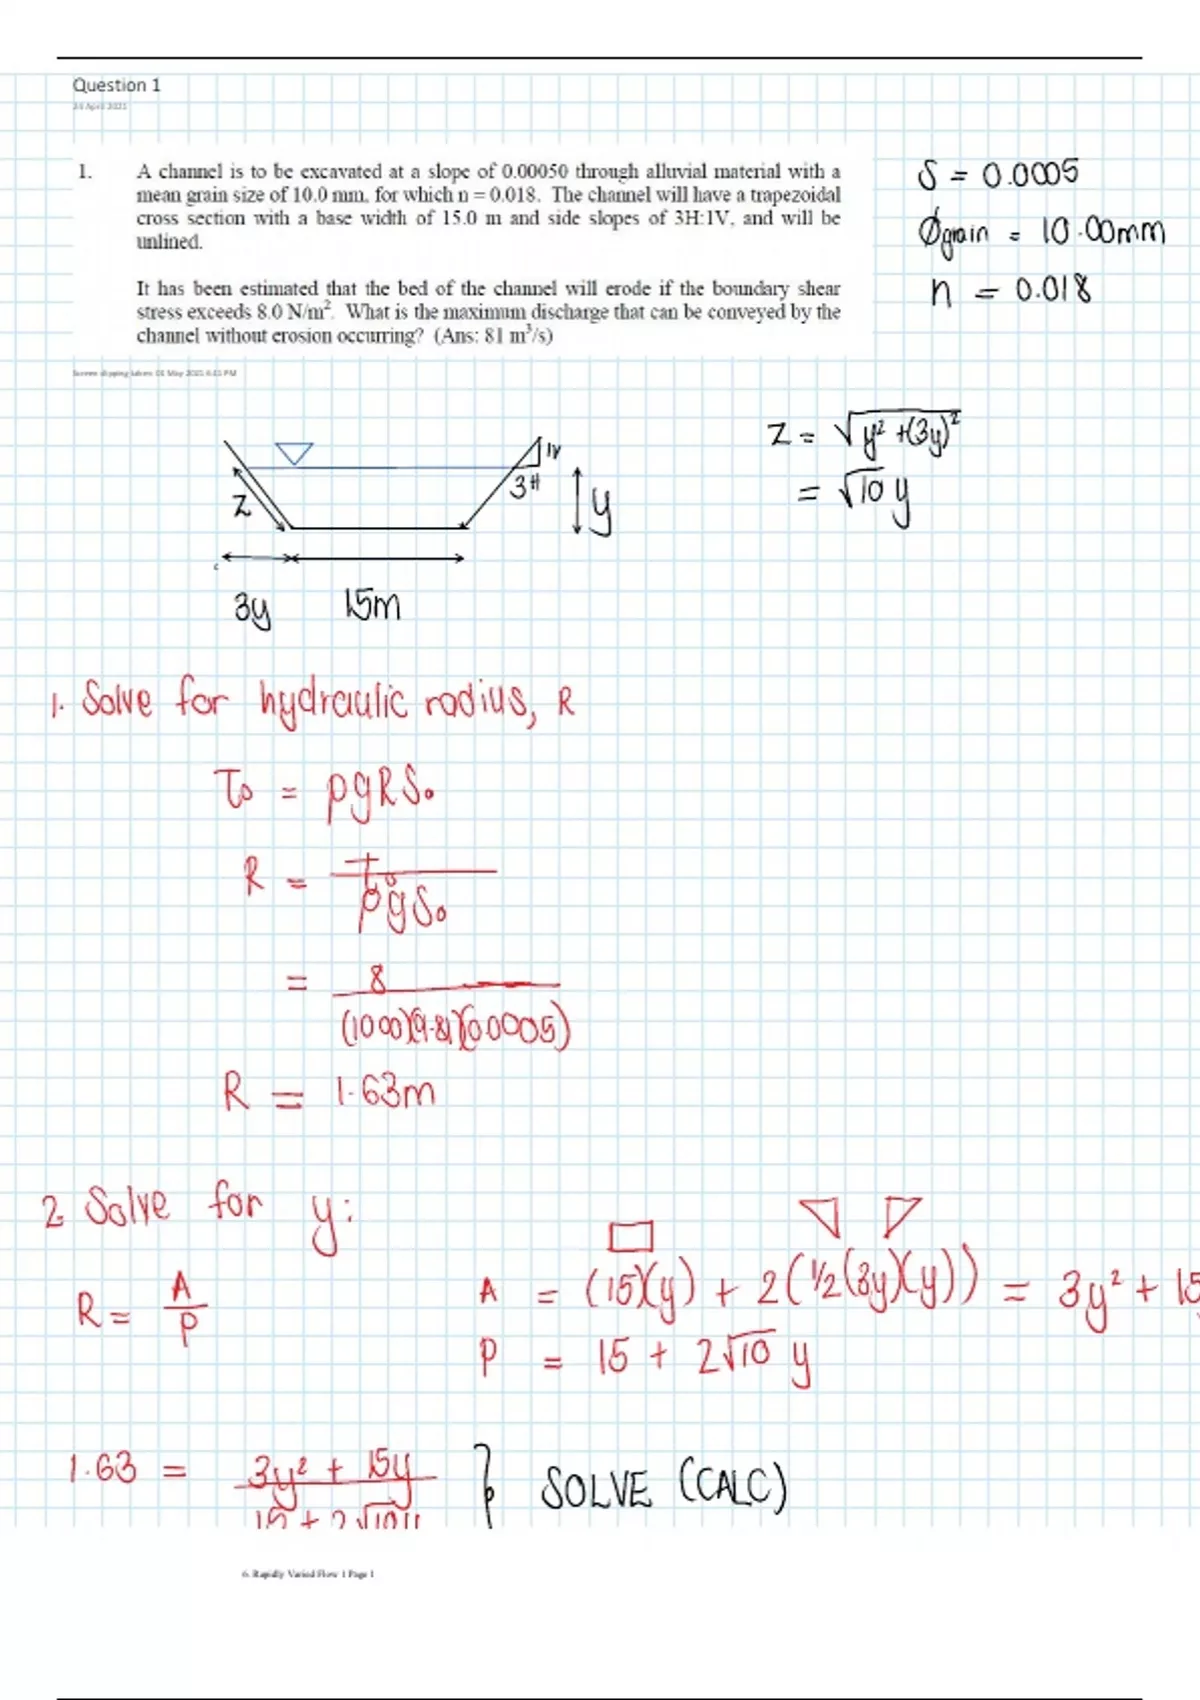 Question 1
24 April 2021
1. A channel is to be excavated at a slope of 0.00050 through alluvial material with a
mean grain size of 10.0 mm, for which n = 0.018. The channel will have a trapezoidal
cross section with a base width of 15.0 m and side slopes of 3H:1V, and will be
unlined.
It has been estimated that the bed of the channel will erode if the boundary shear
stress exceeds 8.0 N/m². What is the maximum discharge that can be conveyed by the
channel without erosion occurring? (Ans: 81 m³/s)
S = 0.0005
Øgrain = 10.00mm
n = 0.018
Screen clipping taken: 01 May 2021 6:41 PM
Z = √y² + (3y)²
= √10 y
1V
3H
Z
y
3y 15m
1. Solve for hydraulic radius, R
τ₀ = ρgRS₀
R = τ₀/ρgS₀
= 8/(1000)(9.81)(0.0005)
R = 1.63m
2. Solve for y:
R = A/P
A = (15)(y) + 2(1/2(3y)(y)) = 3y² + 15
P = 15 + 2√10 y
1.63 = 3y² + 15y/15 + 2√10 y } SOLVE (CALC)
6. Rapidly Varied Flow 1 Page 1